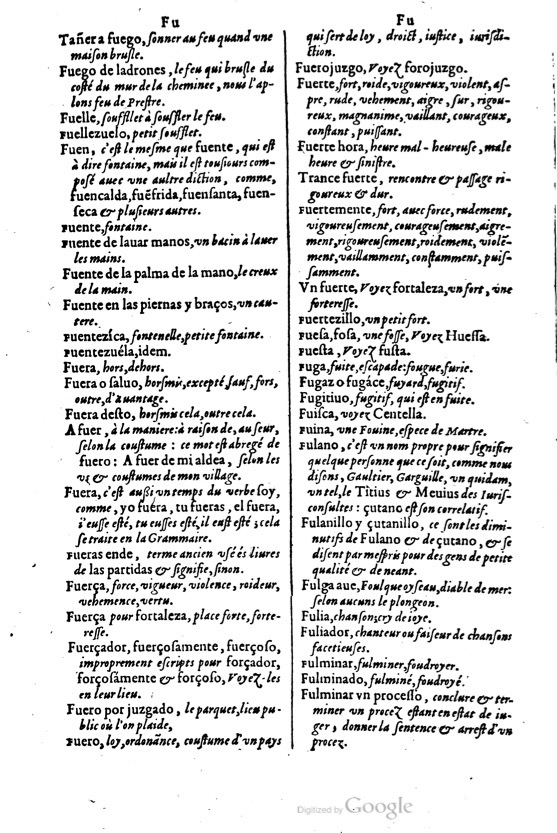 Fu
Tañer a fuego, sonner au feu quand vne
maison brusle.
Fuego de ladrones, le feu qui brusle du
costé du mur de la cheminee, nous l'ap-
lons feu de Prestre.
Fuelle, soufflet à souffler le feu.
Fuellezuelo, petit soufflet.
Fuen, c'est le mesme que fuente, qui est
à dire fontaine, mais il est tousiours com-
posé auec vne aultre diction, comme,
fuencalda, fuẽfrida, fuensanta, fuen-
seca & plusieurs autres.
Fuente, fontaine.
Fuente de lauar manos, vn bacin à lauer
les mains.
Fuente de la palma de la mano, le creux
de la main.
Fuente en las piernas y braços, vn cau-
tere.
Fuentezica, fontenelle, petite fontaine.
Fuentezuéla, idem.
Fuera, hors, dehors.
Fuera o saluo, horsmis, excepté, sauf, fors,
outre, d'auantage.
Fuera desto, horsmis cela, outre cela.
A fuer, à la maniere: à raison de, au feur,
selon la coustume : ce mot est abregé de
fuero: A fuer de mi aldea, selon les
vz & coustumes de mon village.
Fuera, c'est aussi vn temps du verbe soy,
comme, yo fuéra, tu fueras, el fuera,
i'eusse esté, tu eusses esté, il eust esté ; cela
se traite en la Grammaire.
Fueras ende, terme ancien vsé és liures
de las partidas & signifie, sinon.
Fuerça, force, vigueur, violence, roideur,
vehemence, vertu.
Fuerça pour fortaleza, place forte, forte-
resse.
Fuerçador, fuerçosamente, fuerçoso,
improprement escripts pour forçador,
forçosámente & forçoso, Voyez-les
en leur lieu.
Fuero por juzgado, le parquet, lieu pu-
blic où l'on plaide,
Fuero, loy, ordonãnce, coustume d'vn pays
Fu
qui sert de loy, droict, iustice, iurisdi-
ction.
Fuerojuzgo, Voyez forojuzgo.
Fuerte, fort, roide, vigoureux, violent, as-
pre, rude, vehement, aigre, sur, rigou-
reux, magnanime, vaillant, courageux,
constant, puissant.
Fuerte hora, heure mal-heureuse, male
heure & sinistre.
Trance fuerte, rencontre & passage ri-
goureux & dur.
Fuertemente, fort, auec force, rudement,
vigoureusement, courageusement, aigre-
ment, rigoureusement, roidement, violẽ-
ment, vaillamment, constamment, puis-
samment.
Vn fuerte, Voyez fortaleza, vn fort, vne
forteresse.
Fuertezillo, vn petit fort.
Fuesa, fosa, vne fosse, Voyez Huessa.
Fuesta, Voyez fusta.
Fuga, fuite, escapade: fougue, furie.
Fugaz o fugáce, fuyard, fugitif.
Fugitiuo, fugitif, qui est en fuite.
Fuisca, voyez Centella.
Fuina, vne Fouine, espece de Martre.
Fulano, c'est vn nom propre pour signifier
quelque personne que ce soit, comme nous
disons, Gaultier, Garguille, vn quidam,
vn tel, le Titius & Meuius des Iuris-
consultes : çutano est son correlatif.
Fulanillo y çutanillo, ce sont les dimi-
nutifs de Fulano & de çutano, & se
disent par mespris pour des gens de petite
qualité & de neant.
Fulga aue, Foulque oyseau, diable de mer:
selon aucuns le plongeon.
Fulia, chanson; cry de ioye.
Fuliador, chanteur ou faiseur de chansons
facetieuses.
Fulminar, fulminer, foudroyer.
Fulminado, fulminé, foudroyé.
Fulminar vn processo, conclure & ter-
miner vn procez estant en estat de iu-
ger, donner la sentence & arrest d'vn
procez.
Digitized by Google